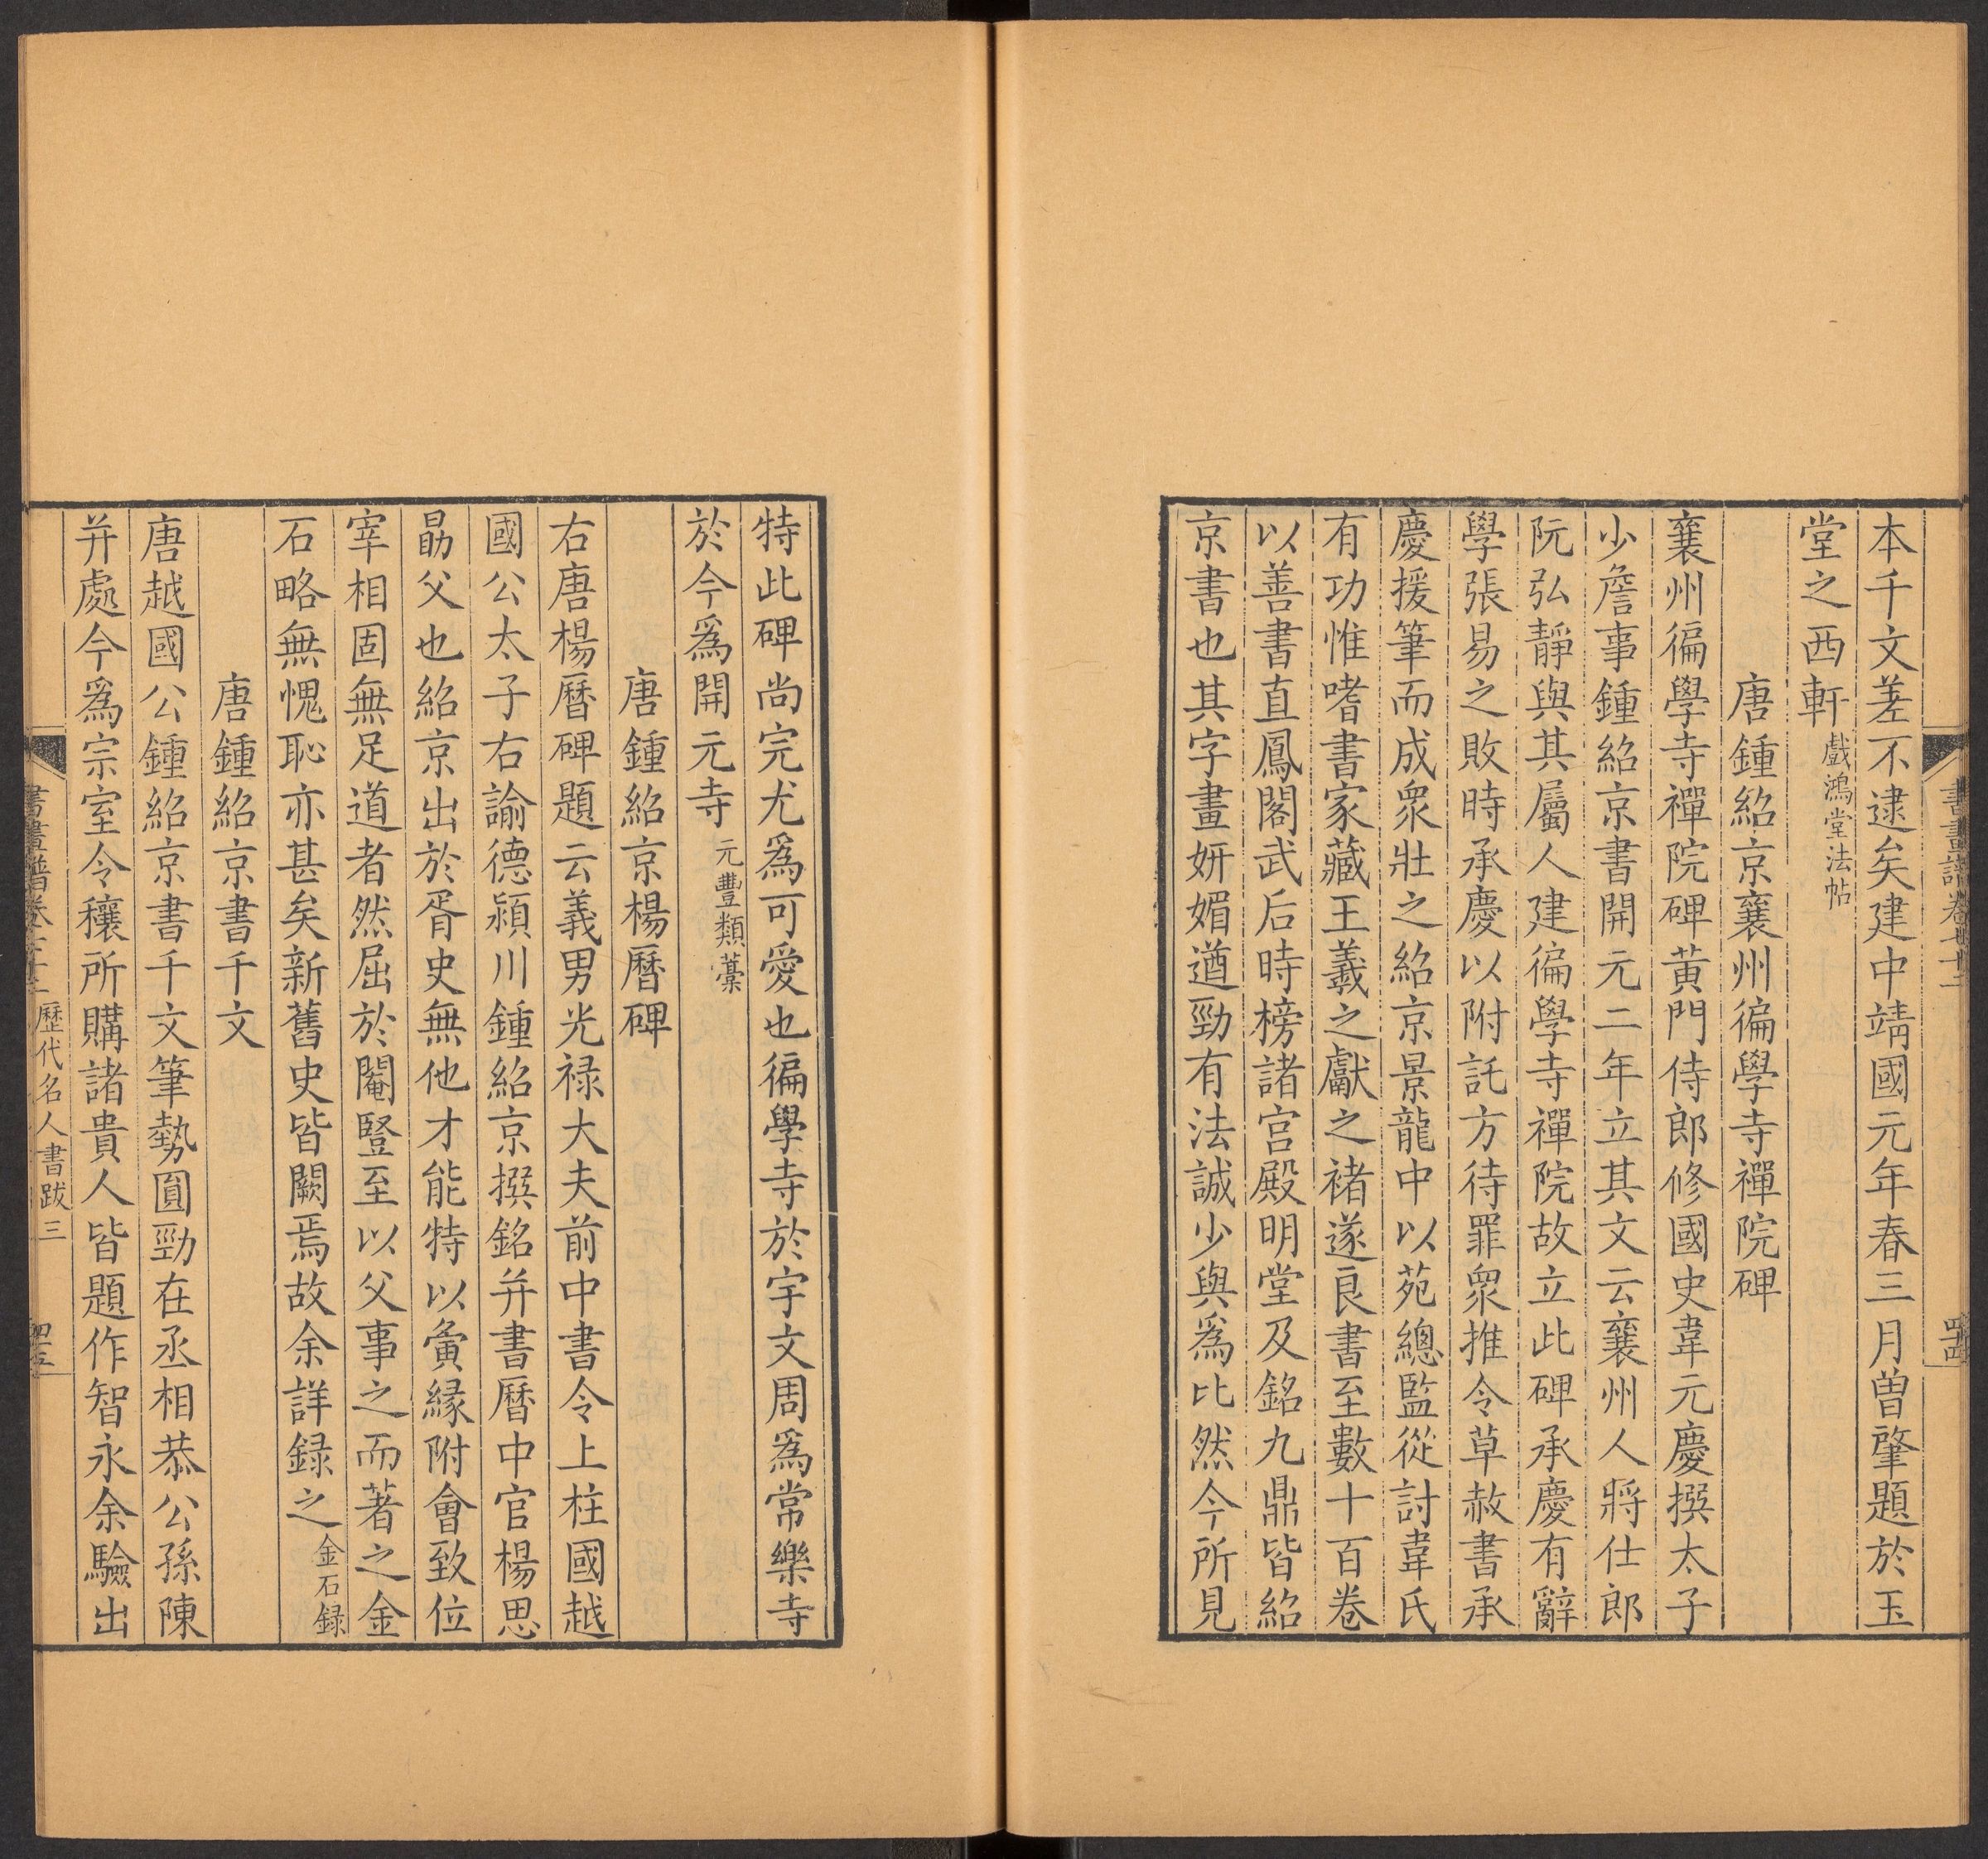 本千文差不逮矣建中靖國元年春三月曾肇題於玉
堂之西軒戲鴻堂法帖
唐鍾紹京襄州徧學寺禪院碑
襄州徧學寺禪院碑黃門侍郎修國史韋元慶撰太子
少詹事鍾紹京書開元二年立其文云襄州人將仕郎
阮弘靜與其屬人建徧學寺禪院故立此碑承慶有辭
學張易之敗時承慶以附託方待罪眾推令草赦書承
慶援筆而成眾壯之紹京景龍中以苑總監從討韋氏
有功惟嗜書家藏王羲之獻之褚遂良書至數十百卷
以善書直鳳閣武后時榜諸宮殿明堂及銘九鼎皆紹
京書也其字畫妍媚遒勁有法誠少與為比然今所見
特此碑尚完尤爲可愛也徧學寺於宇文周爲常樂寺
於今爲開元寺元豐類藁
唐鍾紹京楊曆碑
右唐楊曆碑題云義男光祿大夫前中書令上柱國越
國公太子右諭德潁川鍾紹京撰銘并書曆中官楊思
勗父也紹京出於胥史無他才能特以夤緣附會致位
宰相固無足道者然屈於閹豎至以父事之而著之金
石略無愧恥亦甚矣新舊史皆闕焉故余詳録之金石録
唐鍾紹京書千文
唐越國公鍾紹京書千文筆勢圓勁在丞相恭公孫陳
并處今爲宗室令穰所購諸貴人皆題作智永余驗出
書畫譜卷七十三 歷代名人書跋三